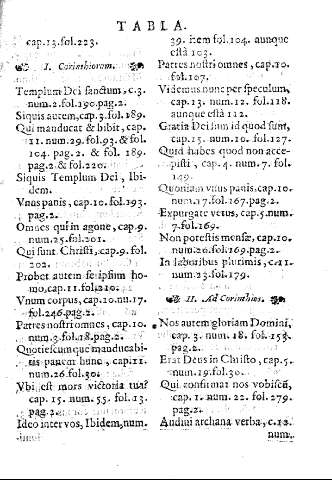 TABLA.
cap.13.fol.223.
I. Corinthiorum.
Templum Dei sanctum, c.3.
num.2.fol.190.pag.2.
Siquis autem, cap.3.fol.189.
Qui manducat & bibit, cap.
11. num.29.fol.93. & fol.
104. pag.2. & fol. 189.
pag.2.& fol.220.
Siquis Templum Dei, Ibi-
dem.
Vnus panis, cap.10.fol.193.
pag.2.
Omnes qui in agone, cap.9.
num.25.fol.201.
Qui sunt Christi, cap.9. fol.
202.
Probet autem se ipsum ho-
mo, cap.11.fol.210.
Vnum corpus, cap.10.nu.17.
fol.246.pag.2.
Patres nostri omnes, cap.10.
num.3.fol.18.pag.2.
Quotiescunque manducabi-
tis panem hunc, cap.11.
num.26.fol.30.
Vbi est mors victoria tua?
cap. 15. num. 55. fol. 13.
pag.2.
Ideo inter vos, Ibidem, num.
39. item fol.104. aunque
està 103.
Patres nostri omnes, cap.10.
fol.107.
Videmus nunc per speculum,
cap.13. num.12. fol.118.
aunque està 112.
Gratia Dei sum id quod sum,
cap.15. num.10. fol.127.
Quid habes quod non acce-
pisti, cap.4. num.7. fol.
149.
Quoniam vnus panis, cap.10.
num.17.fol.167.pag.2.
Expurgate vetus, cap.5.num.
7.fol.169.
Non potestis mensæ, cap.10.
num.20.fol.169.pag.2.
In laboribus plurimis, c.11.
num.23.fol.179.
II. Ad Corinthios.
Nos autem gloriam Domini,
cap. 3. num. 18. fol. 153.
pag.2.
Erat Deus in Christo, cap.5.
num.19.fol.30.
Qui confirmat nos vobiscũ,
cap. 1. num. 22. fol. 279.
pag.2.
Audivi archana verba, c.12.
num.